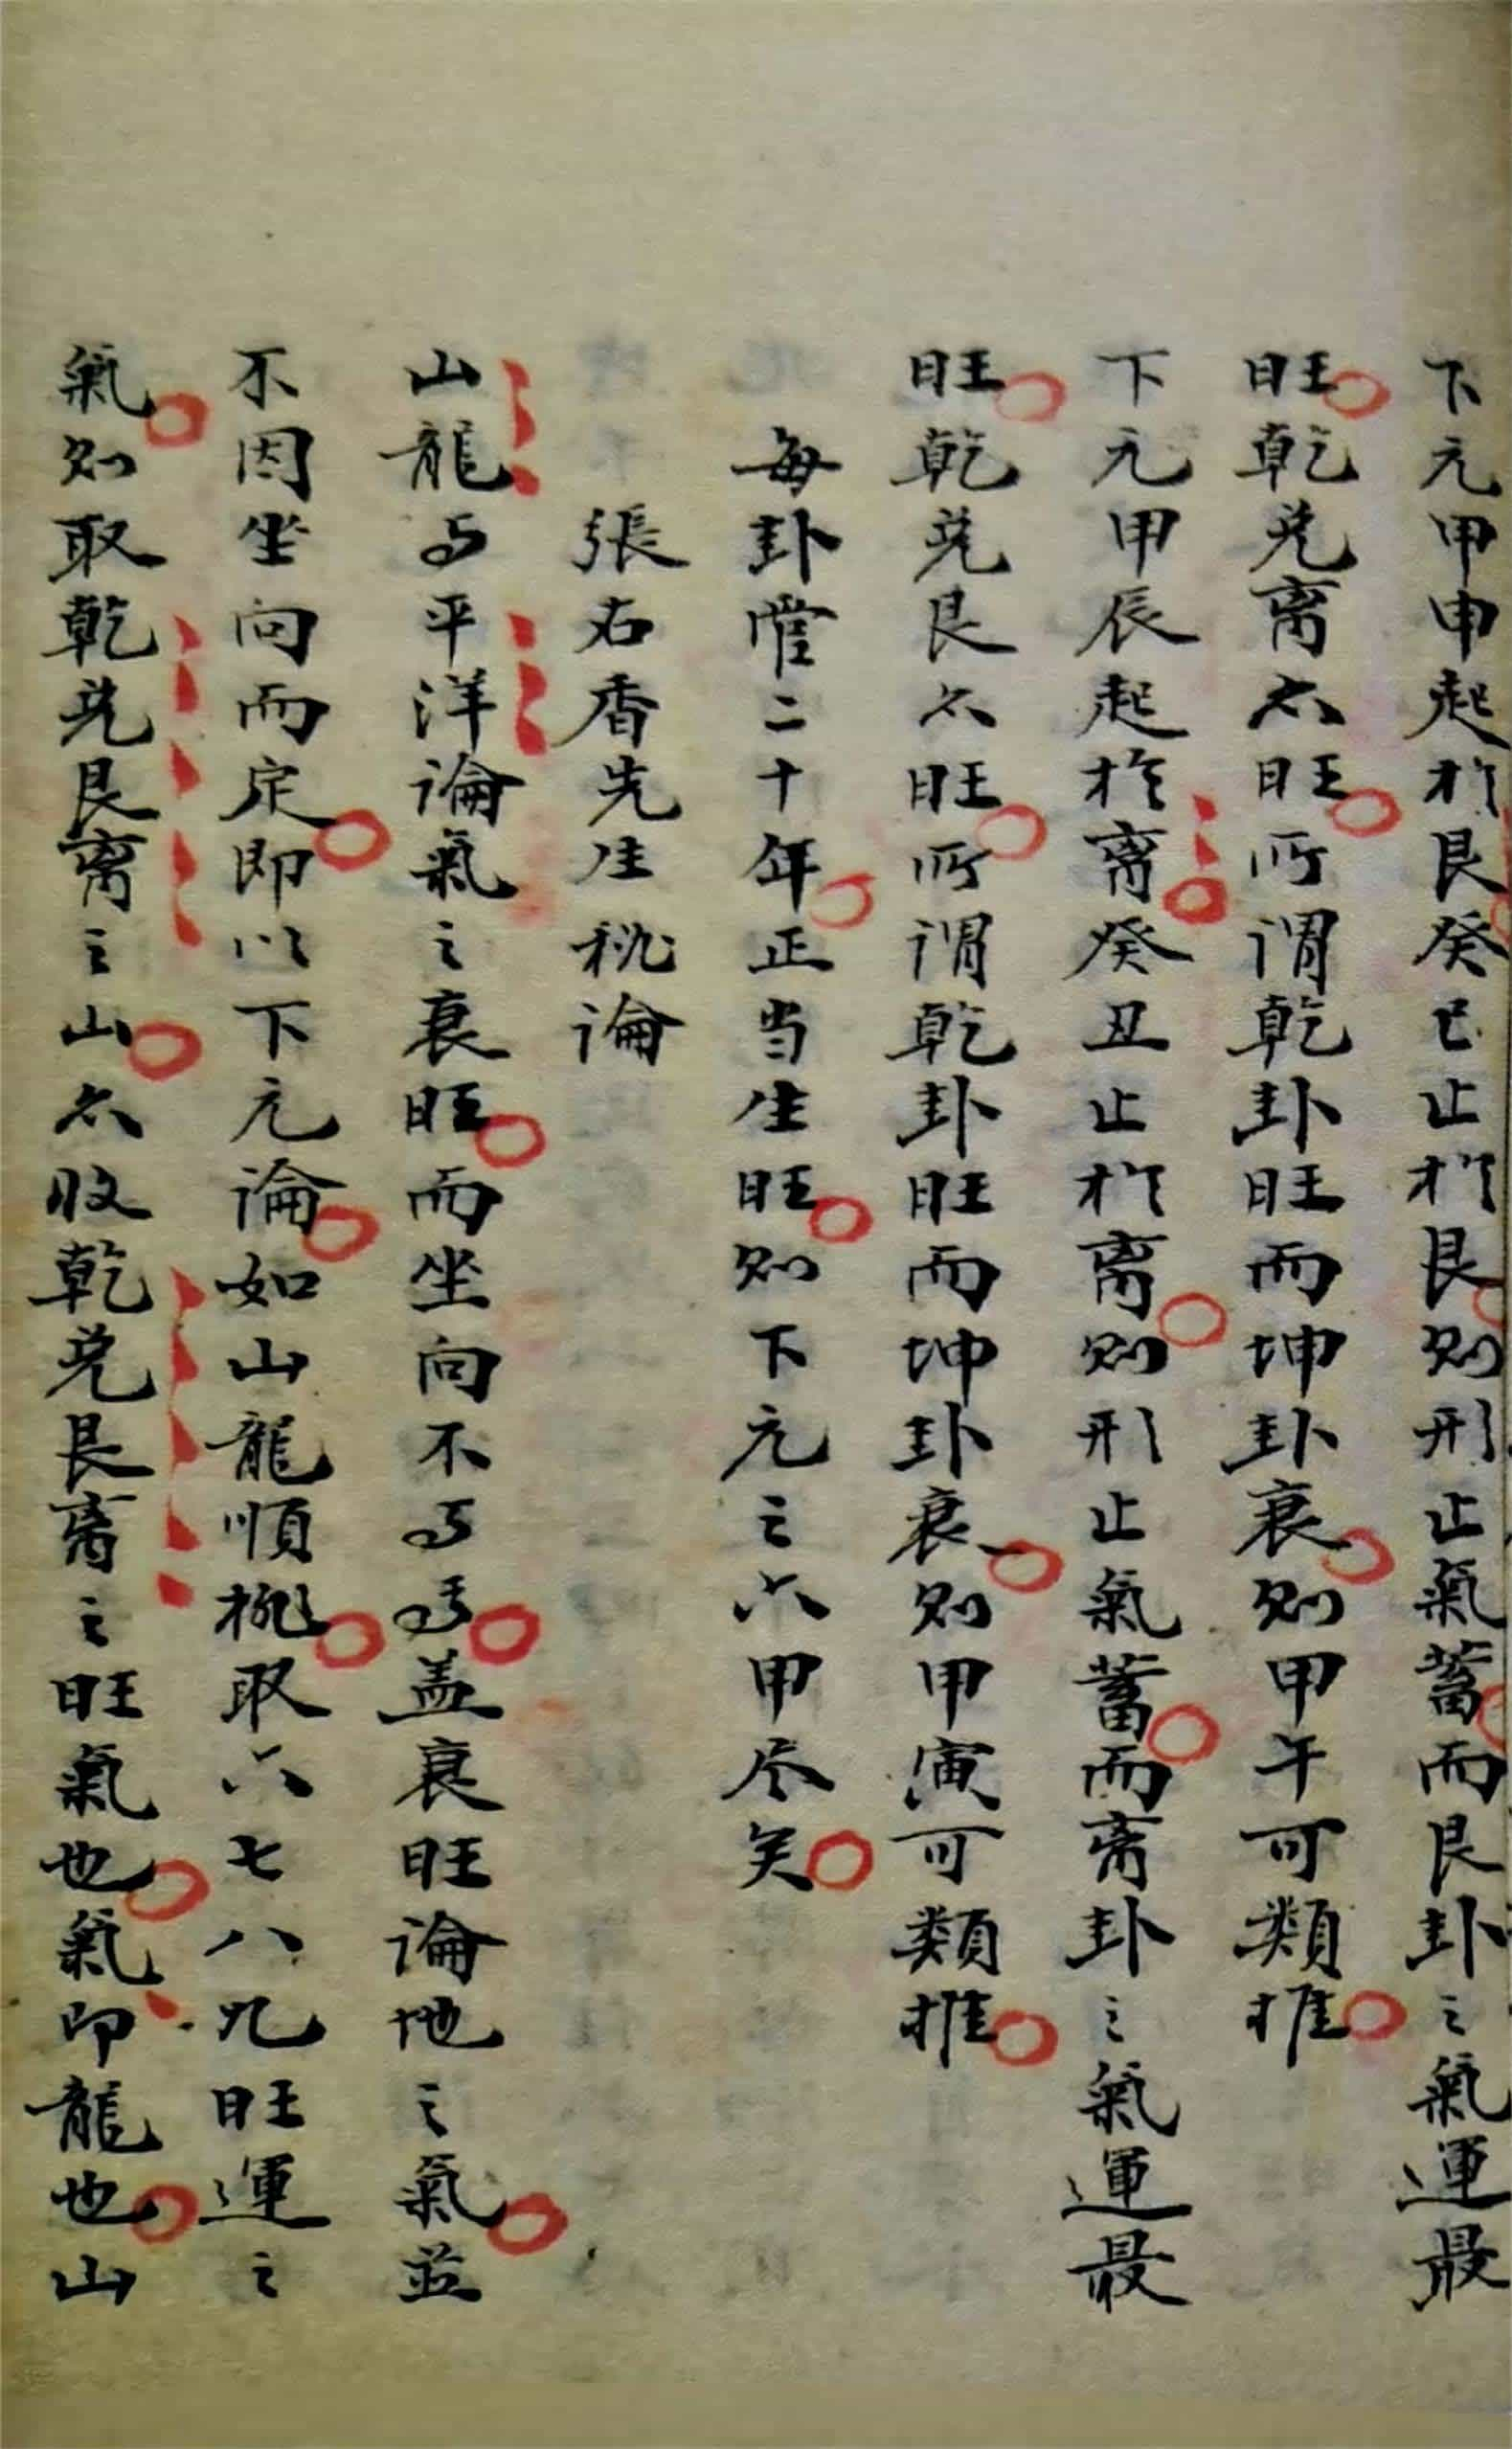 下元甲申起於艮癸巳止於艮则形止氣蓄而艮卦之氣運最
旺乾兑离亦旺所謂乾卦旺而坤卦衰则甲午可類推
下元甲辰起於离癸丑止於离则形止氣蓄而离卦之氣運最
旺乾兑艮亦旺所謂乾卦旺而坤卦衰则甲寅可類推
每卦管二十年正当生旺则下元之六甲尽矣
張右香先生秘論
山龍与平洋論氣之衰旺而坐向不与焉盖衰旺論地之氣並
不因坐向而定即以下元論如山龍順挑取六七八九旺運之
氣则取乾兑艮离之山亦收乾兑艮离之旺氣也氣即龍也山